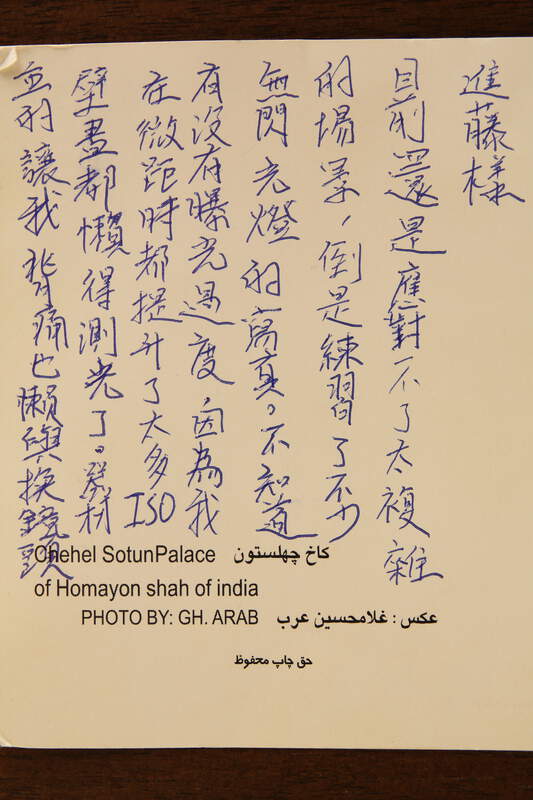 進藤樣
目前還是應對不了太複雜
的場景,倒是練習了不少
無閃光燈的寫真。不知道
有沒有曝光過度,因為我
在微距時都提升了太多ISO
壁畫都懶得測光了。器材
重的讓我背痛也懶與換鏡頭
Chehel SotunPalace کاخ چهلستون
of Homayon shah of india
PHOTO BY: GH. ARAB عکس : غلامحسین عرب
حق چاپ محفوظ